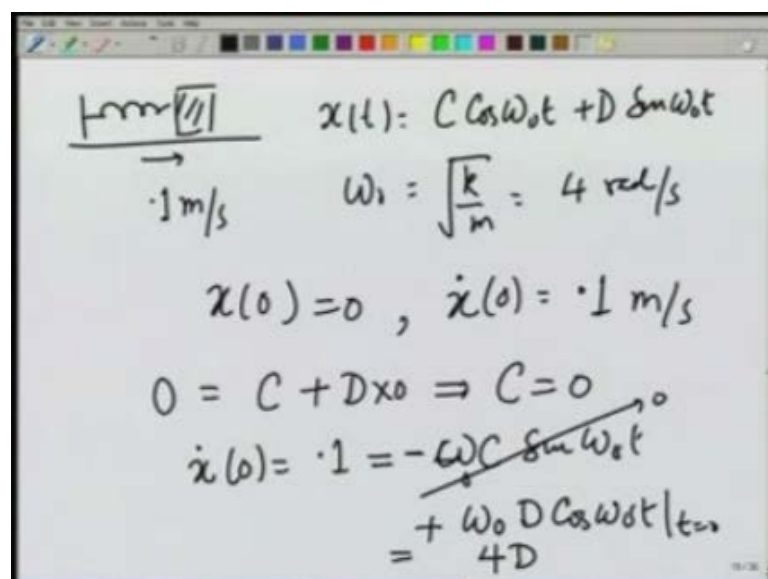 x(t) = C Cos ω₀t + D Sin ω₀t
·1 m/s
ω₀ = √(k/m) = 4 rad/s
x(0) = 0 , ẋ(0) = ·1 m/s
0 = C + D×0 ⇒ C = 0
ẋ(0) = ·1 = - ω₀C Sin ω₀t → 0
+ ω₀ D Cos ω₀t |t=0
= 4D